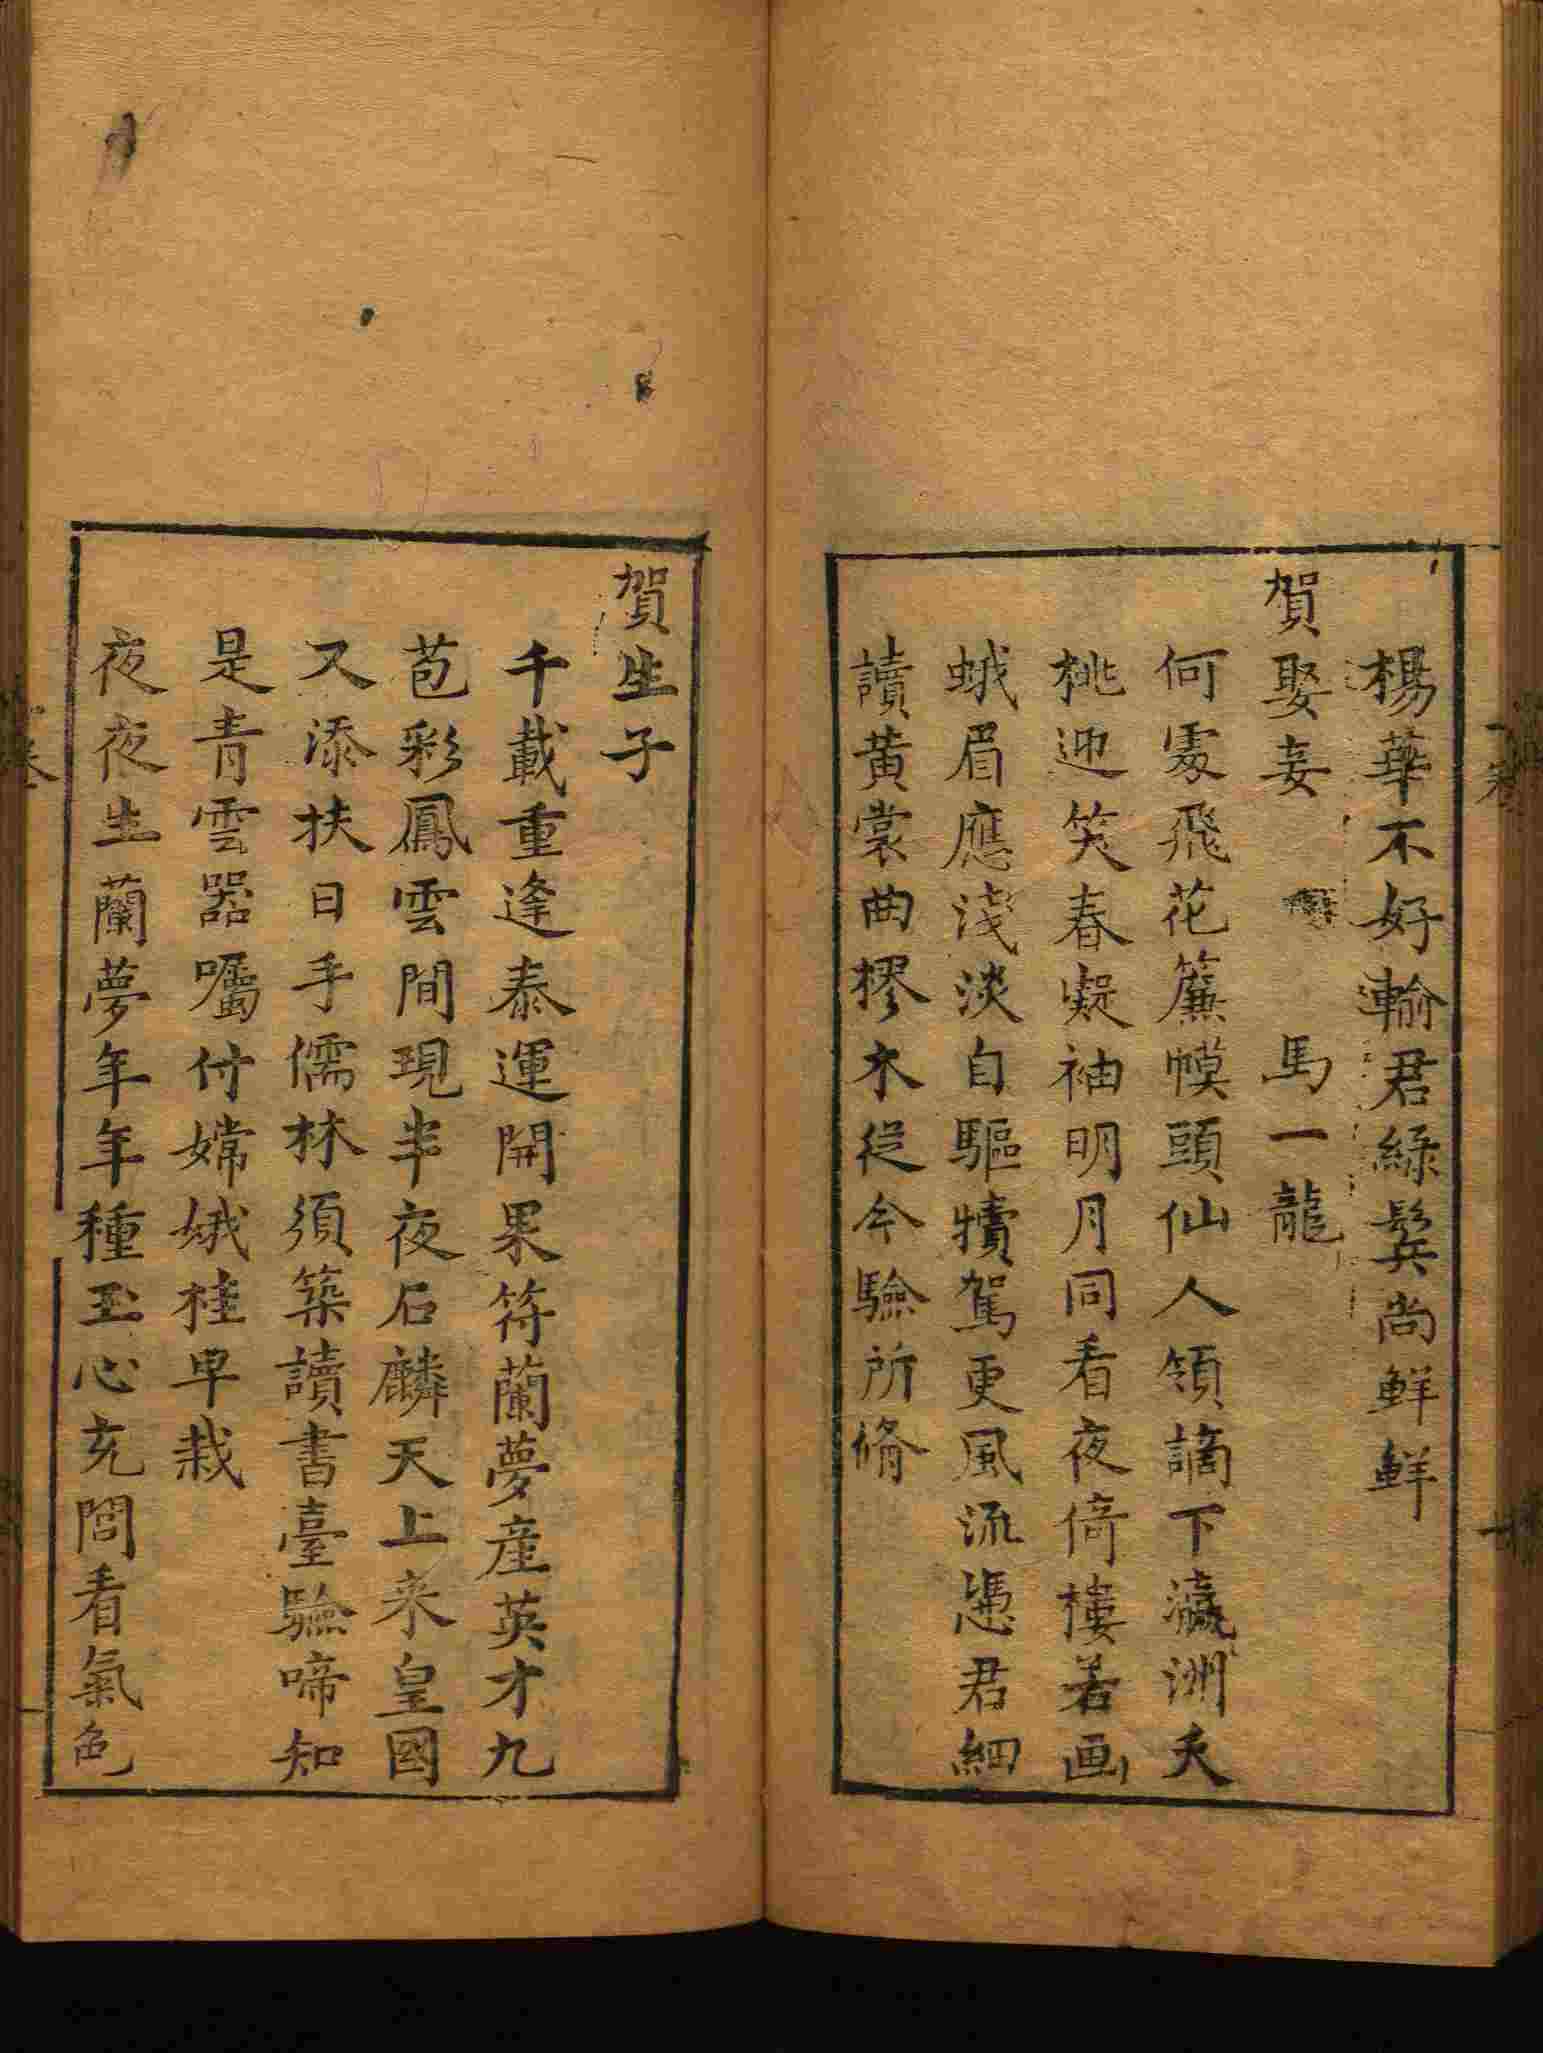 楊華不好輸君綠鬓尚鮮鮮
賀娶妾 馬一龍
何處飛花簾幙頭仙人領謫下瀛洲夭
桃迎笑春凝袖明月同看夜倚樓若画
蛾眉應淺淡自驅犢駕更風流憑君細
讀黄裳曲樛木從今驗所脩
賀生子
千載重逢泰運開果符蘭夢産英才九
苞彩鳳雲間現半夜石麟天上来皇國
又添扶日手儒林須築讀書臺驗啼知
是青雲器囑付嫦娥桂早栽
夜夜生蘭夢年年種玉心充閭看氣色